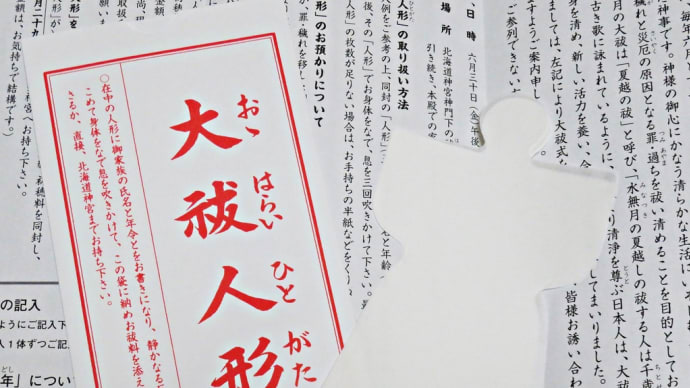 大祓人形
おゝ はらい ひと がた
○在中の人形に御家族の氏名と年令とをお書きになり、静かなる
こめて身体をなで息を吹きかけて、この袋に納めお祓料を添え
きるか、直接、北海道神宮までお持ち下さい。
毎年六月と
な神事です。神様の御心にかなう清らかな生活に
穢れと災厄の原因となる罪・過ちを祓い清めることを目的として
月の大祓は「夏越の祓」と呼び、「水無月の夏越しの祓する人は千歳
古き歌に詠まれているように、
り清浄を尊ぶ日本人は、大祓
身を清め、新しい活力を養い、今
してまいりました。
ては、左記により大祓式を
皆様お誘い合わ
ますようご案内申し
ご参列できない
日 時 六月三十日(金)午後
場 所 北海道神宮神門下の
引き続き、本殿での
人形」の取り扱い方法
例をご参考の上、同封の「人形」
と年齢
後、その「人形」でお身体をなで、息を三回吹きかけて下さい。
形」の枚数が足りない場合は、お手持ちの半紙などをくり
形」のお預かりについて
が、罪・穢れを移し
初穂料を同封し、
神宮へお持ち下さい。
金額は、お気持ちで結構です。)
の記入
ようにご記入下
人1体ずつご記
年」につい